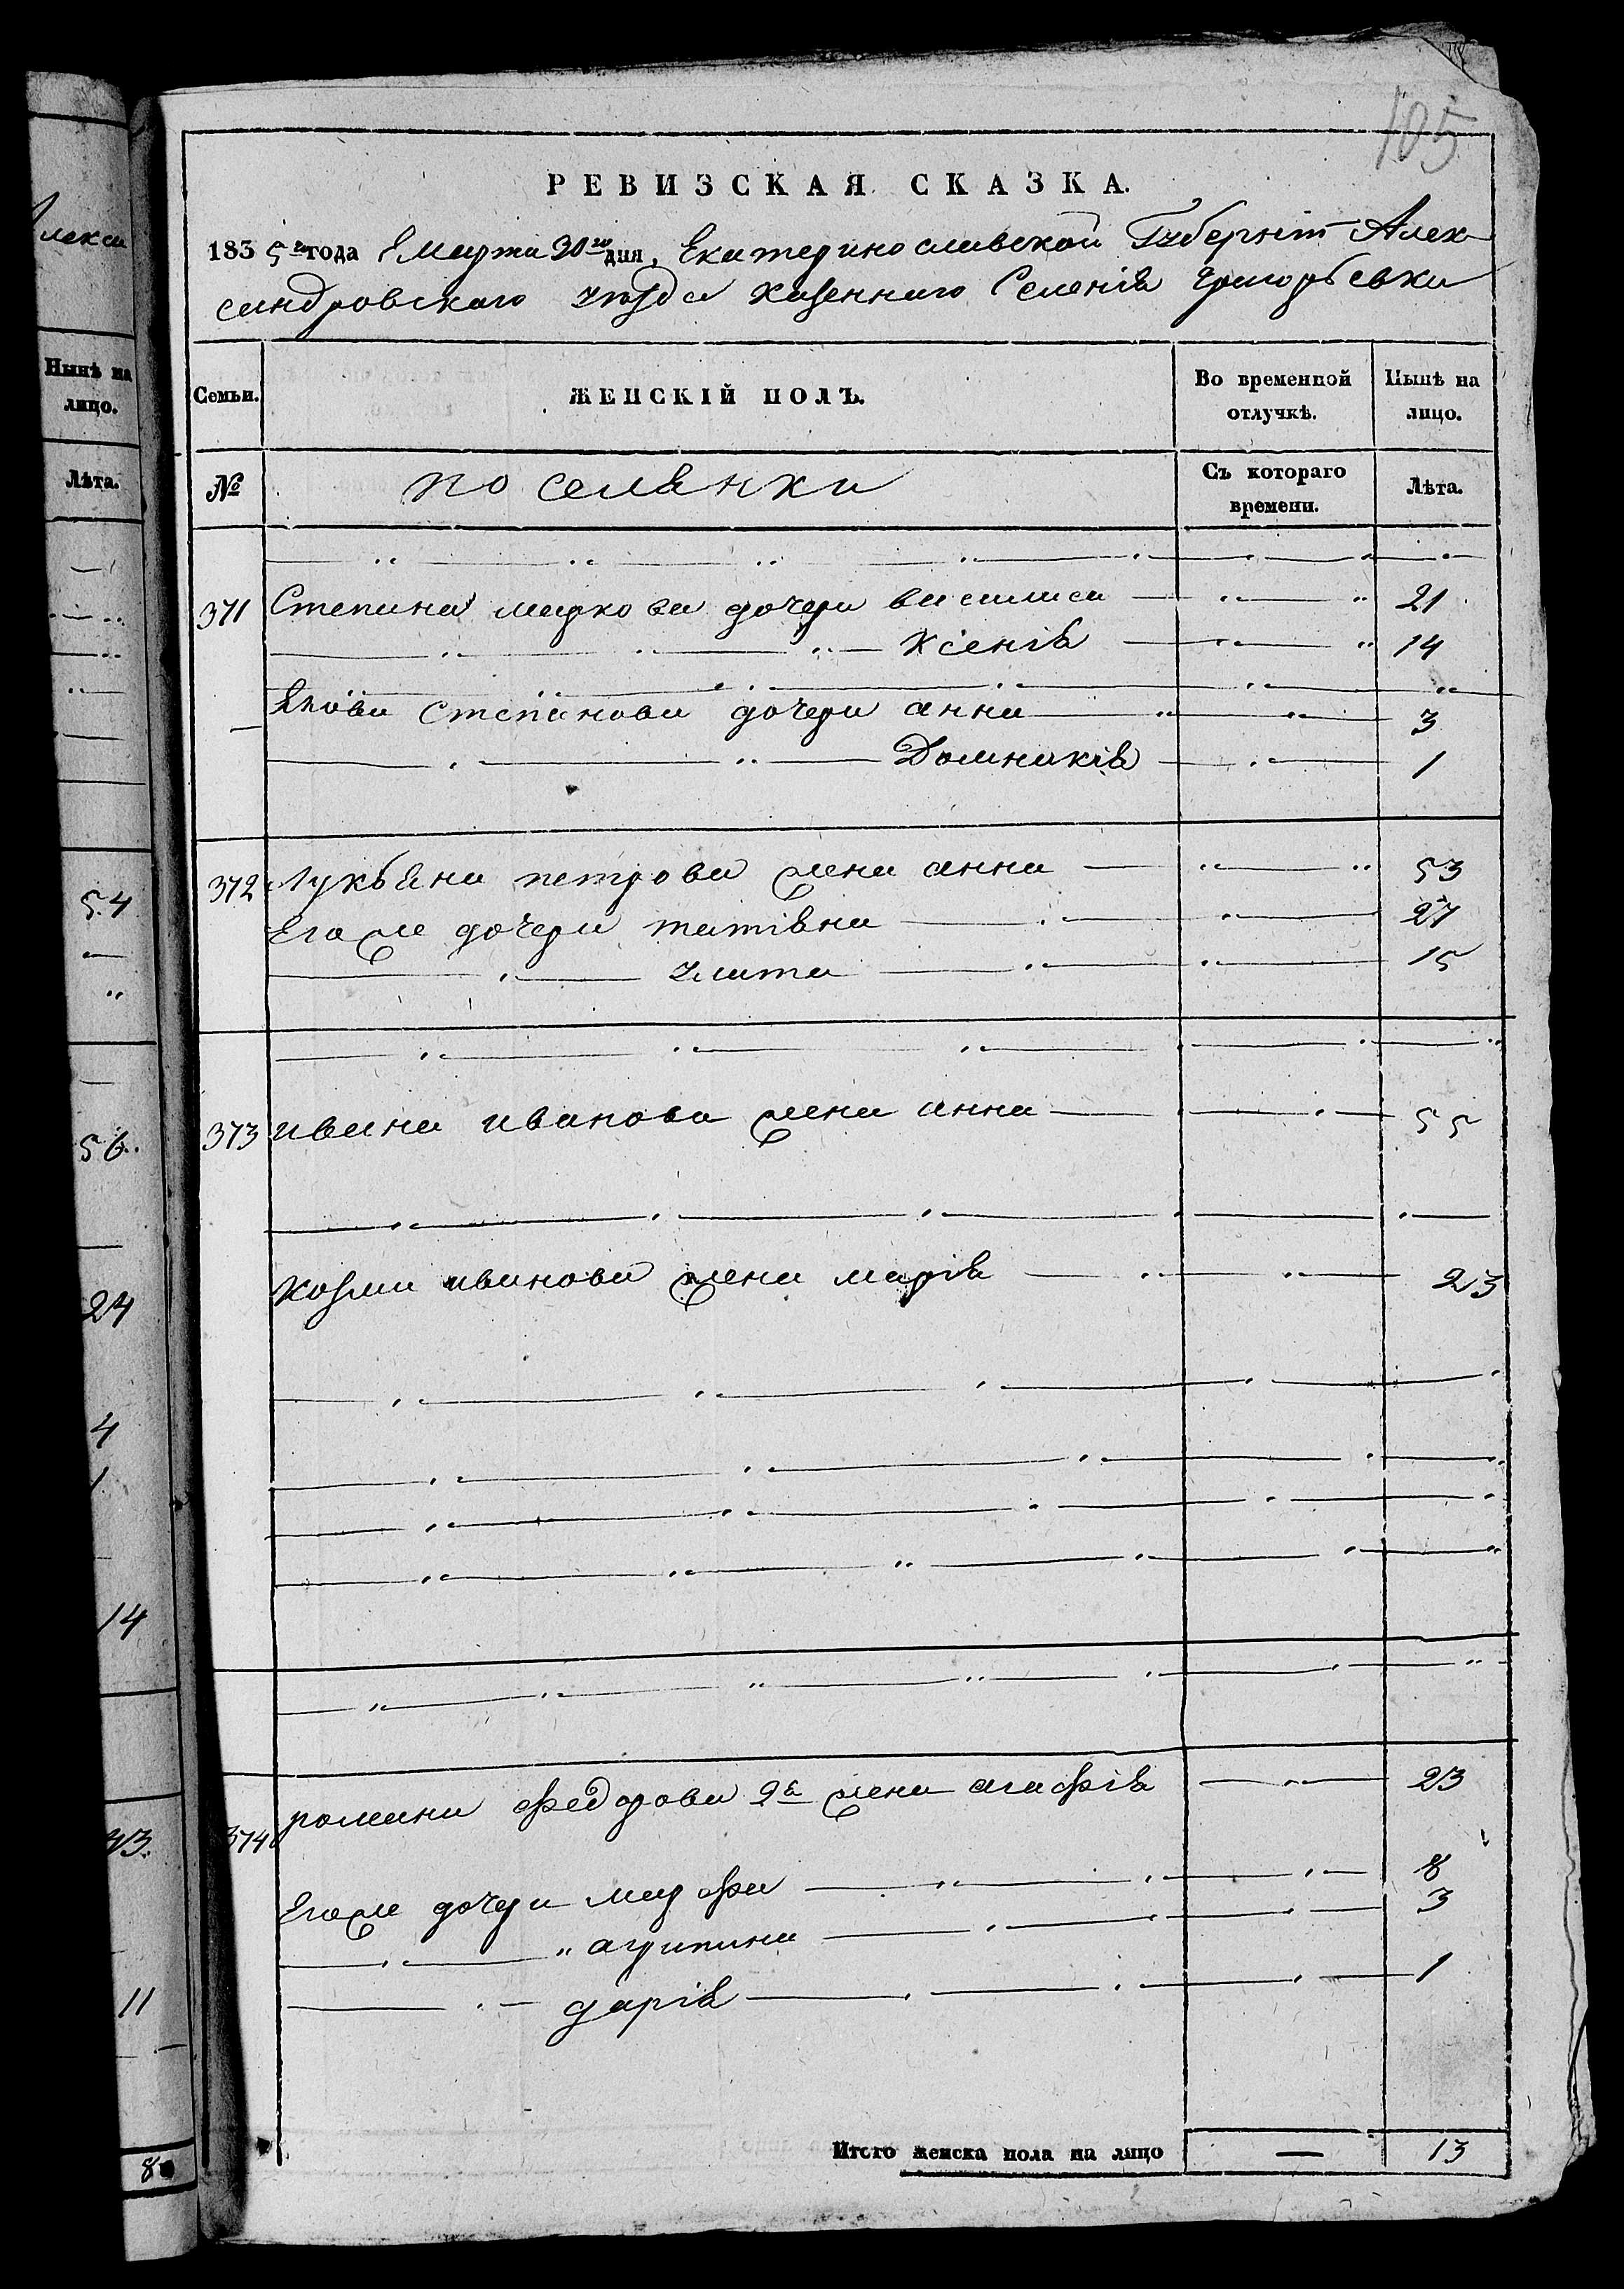 105
РЕВИЗСКАЯ СКАЗКА.
1835го года Марта 30го дня, Екатеринославской Губерніи Алек
сандровского уезда казенного Селенія Григорьевки
Семьи. ЖЕНСКІЙ ПОЛЪ. Во временной отлучкѣ. Нынѣ на лицо.
№ поселянки Съ котораго времени. Лѣта.
371 Степана маркова дочери василиса 21
Ксенія 14
Якова Степанова дочери анна 3
Домникія 1
372 Лукьяна петрова жена анна 53
Егоже дочери татіяна 27
улита 15
373 ивана иванова жена анна 55
козми иванова жена марія 23
374 романа федорова 2я жена агафія 23
Егоже дочери марфа 8
агрипина 3
дарія 1
Итого женска пола на лицо — 13
Алекса
Нынѣ на
лицо.
Лѣта.
54
56
24
4
1
14
33
11
8